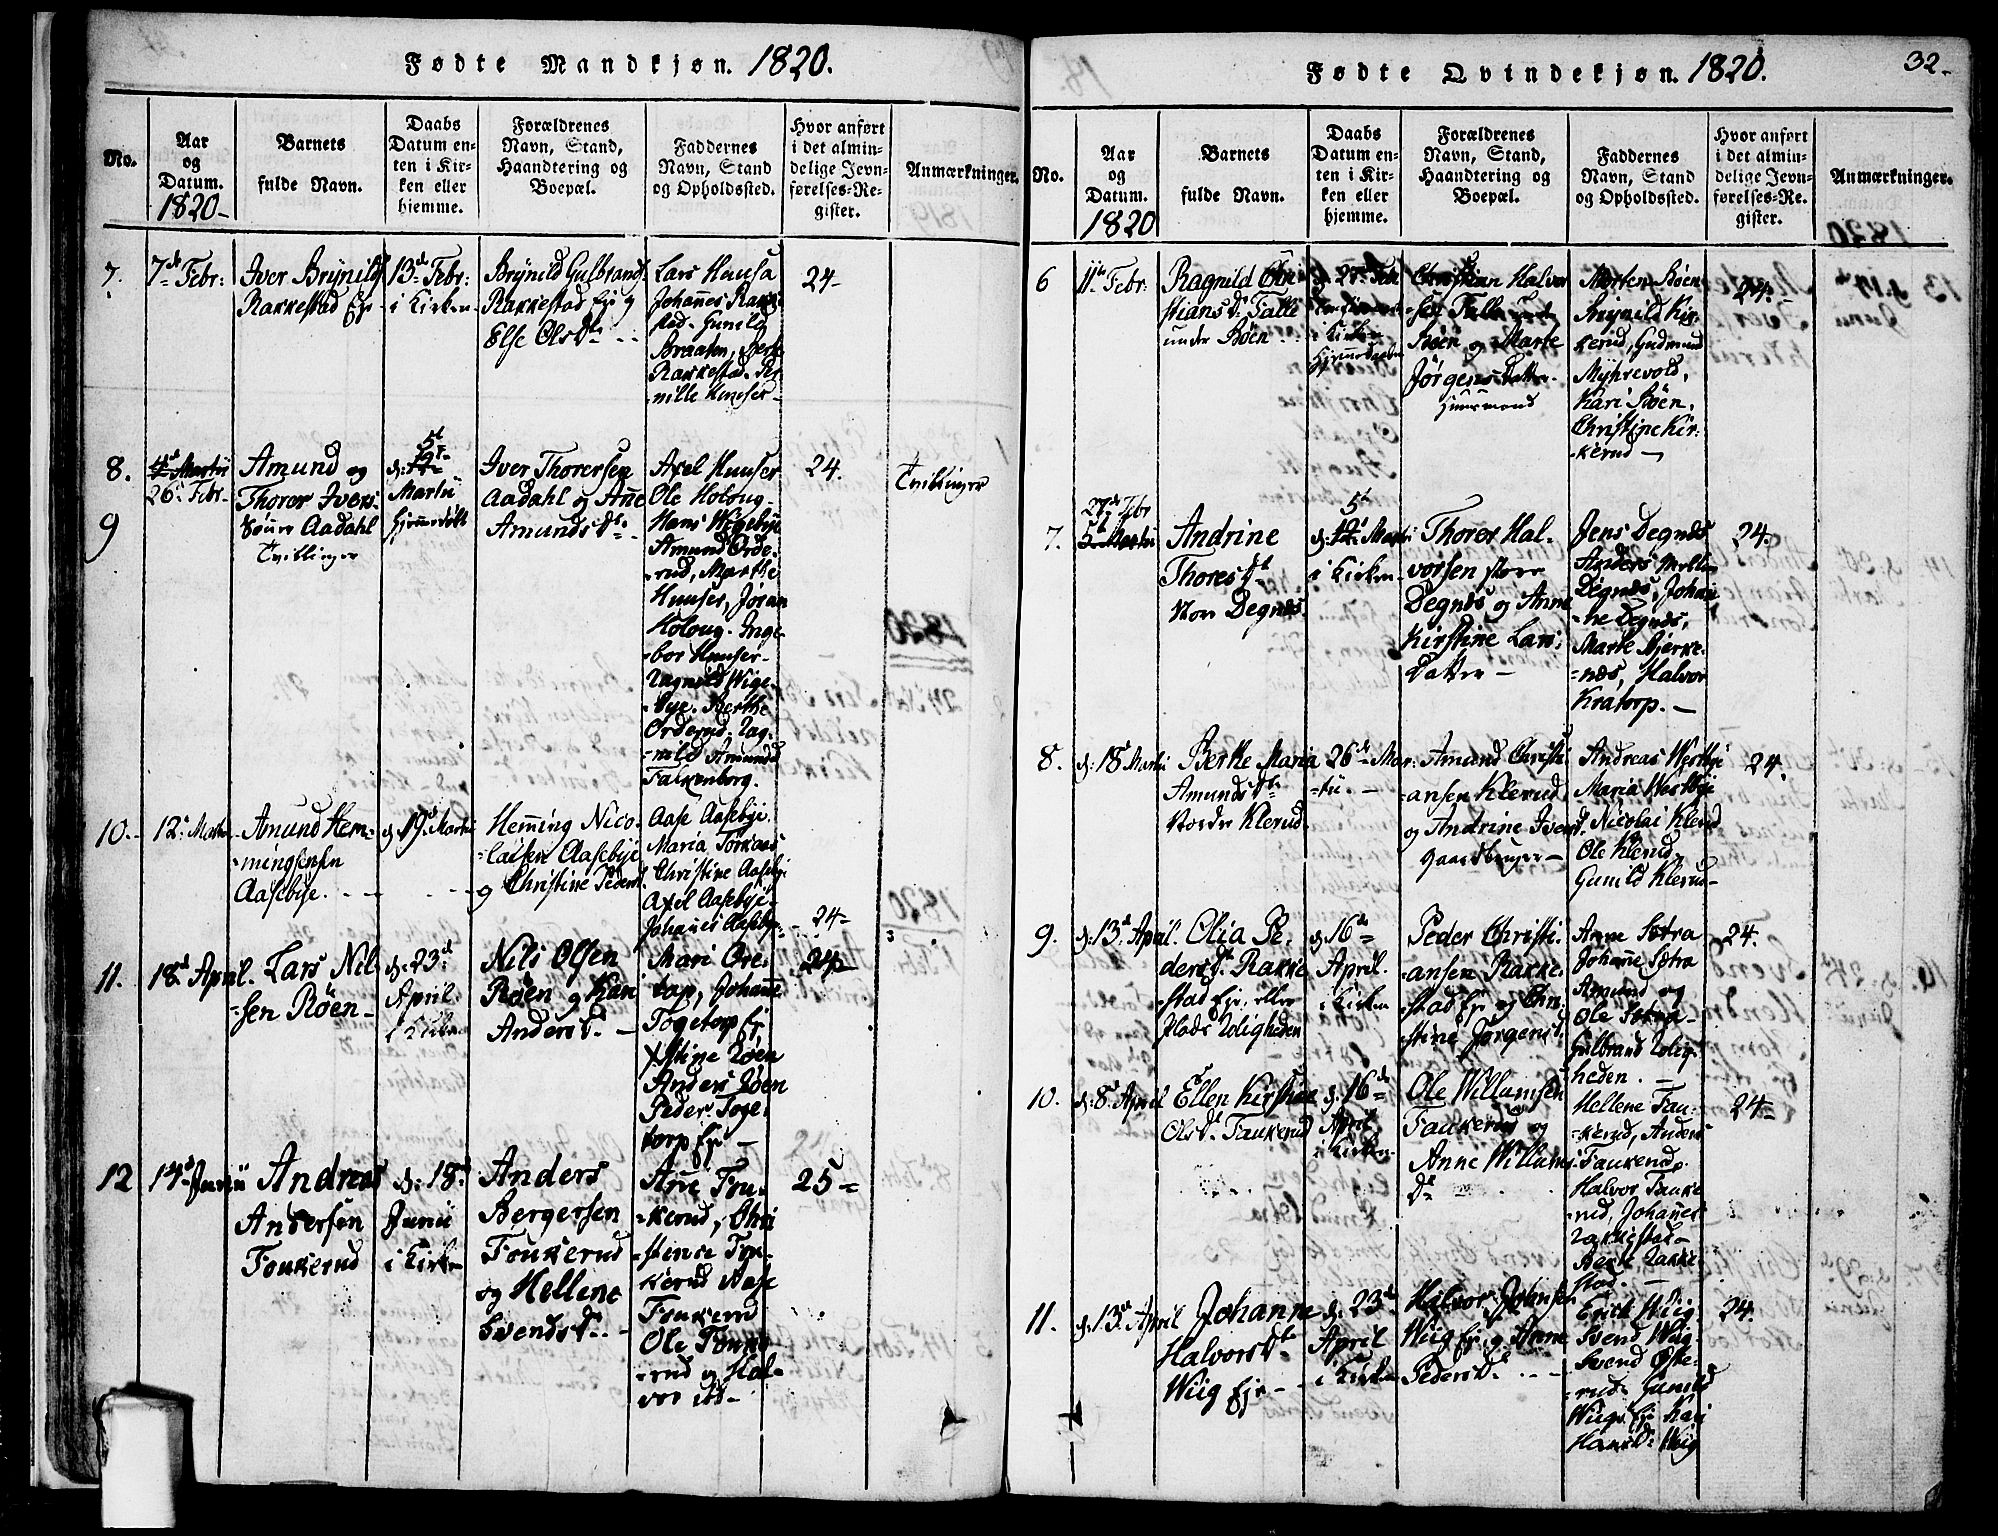 Fødte Mandkjøn. 1820.
No.
Aar
og
Datum.
1820-
Barnets
fulde Navn.
Daabs
Datum en-
ten i Kir-
ken eller
hjemme.
Forældrenes
Navn, Stand,
Haandtering og
Boepæl.
Faddernes
Navn, Stand
og Opholdssted.
Hvor anført
i det almin-
delige Jevn-
førelses-Re-
gister.
Anmærkninger.
7.
7de Febr:
Iver Brynilds
Rakkestad Eje
13de Febr:
i Kirken
Brynild Gulbrands
Rakkestad Eje og
Else Olsdr
Lars Huusa
Johannes Rakke-
stad. Gunild
Braaten, Berte
Rakkestad. Per-
nille Huuser
24-
8.
9
4de Martii
26de Febr-
Amund og
Thoror Ivers-
Sønner Aadahl
Tvillinger
5t
d: 12t
Martii
hjemmedøbt
Iver Thorersen
Aadahl og Anne
Amundsdr
Axel Huuser
Ole Holoug-
Hans Wigebye
Amund Orde-
-rud, Marthe
Huuser, Joran
Holoug. Inge-
-bor Huuser-
Ragnild Wige-
bye. Berthe
Orderud. Rag-
-nild Amunds
Falkenborg.
24.
Tvillinger
10.
12te Martii
Amund Hem-
-mingsensen
Aasebye.
d. 19de Martii
Hemming Nico-
-laisen Aasebye
og Christine Peders
Aase Aasebye.
Maria Torkaas
Christine Aaseby
Axel Aasebye-
Johannes Aaseby
24-
11.
18d April.
Lars Nil-
-sen Röen-
d. 23d
April
i Kirken
Nils Olsen
Röen og Kari
Andersd.
Mari Ore-
tap, Johanne
Togetorp Ej
Stine Röen
Anders Röen
Peder Toge-
torp Eje-
24-
12
14d Junii
Andreas
Andersen
Foukerud
d. 18d
Junii
i Kirken
Anders
Bergersen
Foukerud
og Hellene
Svendsd.
Anne Fou-
-kerud, Chri
-stense Fou-
kerud Aase
Foukerud
Ole Fouke-
-rud og Hal-
vor ibd-
25-
Fødte Qvindekjøn. 1820.
32-
No.
Aar
og
Datum.
1820
Barnets
fulde Navn.
Daabs
Datum en-
ten i Kir-
ken eller
hjemme.
Forældrenes
Navn, Stand,
Haandtering og
Boepæl.
Faddernes
Navn, Stand
og Opholdssted.
Hvor anført
i det almin-
delige Jevn-
førelses-Re-
gister.
Anmærkninger.
6
11te Febr:
Ragnild Chri
stiansd. Talle
under Böen
d. 27de Feb
i Kirken
Christian Halvor
-sen Talle under
Böen og Marte
Jörgensdatter.
Huusmand
Morten Böen
Brynild Kir-
kerud, Gudmund
Myhrevold,
Kari Böen.
Christine Kir-
-kerud -
24.-
7.
27de Febr
5t Martii
Andrine
Thoresdr
Stor Degnæs.
5t
d: 12t Marti
i Kirken
Thoror Hal-
vorsen store
Degnæs og Anne
Kirstine Lars
Datter -
Jens Degnæs
Anders Mellem
Degnæs, Johan-
-ne Degnæs,
Marte Bjerke-
-næs, Halvor
Kratorp. -
24.
8.
d: 18d Martii
Berthe Maria
Amundsdr
Nordre Klerud.
26de Mar-
-tii. -
Amund Christi-
ansen Klerud,
og Andrine Iversd.
Gaardbruger-
Andreas Westbye
Maria Westbye
Nicolai Klerud
Ole Klerud
Gunild Klerud-
24.
9.
d. 13d April.
Olia Pe-
dersd. Rakke
stad Eje. eller
Plads Roligheden
d. 16de
April.
i Kirken
Peder Christi-
ansen Rakke-
stad Eje og Chri-
stine Jörgensd.
Anne Sætra
Johanne Sætra
Amund og
Ole Sætra-
Gulbrand Rolig-
heden. -
24.
10.
d. 8d April
Ellen Kirstine
Olsd. Faukerud
d. 16de
April,
i Kirken
Ole Willumsen
Faukerud og
Anne Willums
Dr
Hellene Fau-
-kerud, Anders
Faukerud.
Halvor Fauke-
-rud, Johannes
Rakkestad-
Berte Rakke-
stad. -
24-
11.
d. 13d April
Johanne
Halvorsdr
Wiig Eje-
d. 23d
April
i Kirken
Halvor Johnsen
Wiig Eje. og Anne
Pedersd.
Erich Wiig
Svend Wiig.
Svend Øste-
-rud. Gunild
Wiigs Eje Kari
Hansd. Wiig
24.